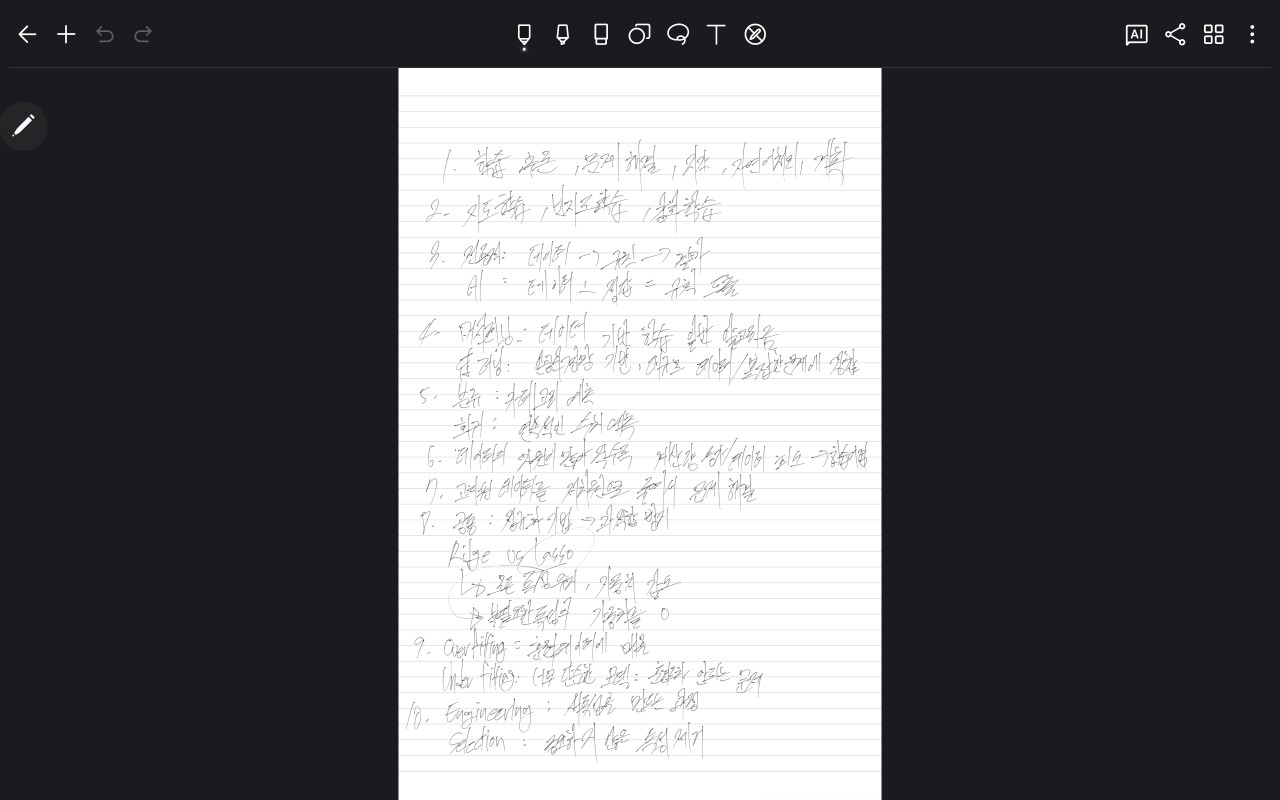 AI
1. 학습, 추론, 문제 해결, 지각, 자연어처리, 계획
2. 지도학습, 비지도학습, 강화학습
3. 데이터 → 규칙 → 결과
AI : 데이터 + 정답 = 규칙
4. 머신러닝 : 데이터 기반 학습 일반 알고리즘
딥러닝 : 인공신경망 기반, 대규모 데이터/복잡한 문제에 적합
5. 분류 : 카테고리 예측
회귀 : 연속적인 수치 예측
6. 데이터의 차원이 계산량 데이터
7. 고차원 데이터를 저차원으로 줄여서 문제 해결
8. 공통 : 정규화 기법 → 과적합 방지
Ridge vs Lasso
↳ 모든 특성 유지, 가중치 감소
↳ 불필요한 특성의 가중치를 0
9. Overfitting = 훈련데이터에
Under fitting: 너무 단순한 모델 :
10. Engineering : 새 특성을 만드는 과정
Selection : 중요하지 않은 특성 제거